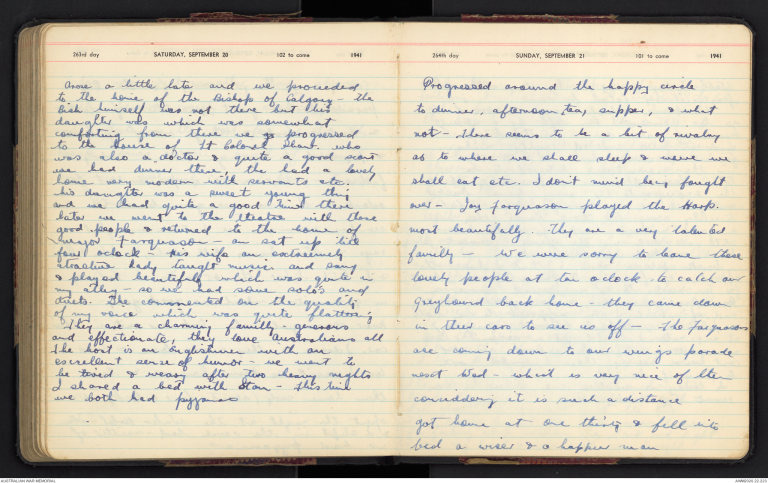 263rd day SATURDAY, SEPTEMBER 20 102 to come 1941
Arose a little late and we proceeded
to the home of the Bishop of Calgary - the
Bish himself was not there but his
daughter was which was somewhat
comforting from there we go progressed
to the House of Lt Colonel who
was also a doctor & quite a good scout
we had dinner there, the had a lovely
home very modern with servants etc.
his daughter was a sweet young thing
and we had quite a good time there
later we went to the theatre with these
good people & returned to the home of
Major Farguason - an sat up till
four oclock - his wife an extremely
atractive lady taught music and sang
& played beautifully which was quite in
my alley - so we had some solo's and
duets. She commented on the quality
of my voice which was quite flattering
They are a charming familly - generous
and effectionate, they love Australians all
The host is an englishman with an
excellent sense of humor - we went to
be tired & weary after two heavy nights
I shared a bed with Stan - this time
we both had pyjamas
264th day SUNDAY, SEPTEMBER 21 101 to come 1941
Progressed around the happy circle
to dinner, afternoon tea, supper, & what
not - There seems to be a bit of rivalry
as to where we shall sleep & were we
shall eat etc. I don't mind being fought
over - Joy Farguason played the Harp.
most beautifully. They are a very talented
familly - We were sorry to leave these
lovely people at ten oclock to catch our
Greyhound back home - they came down
in their cars to see us off - The Farguasons
are coming down to our wings parade
next Wed - which is very nice of them
considdering it is such a distance
got home at one thirty & fell into
bed a wiser & a happier man
AUSTRALIAN WAR MEMORIAL